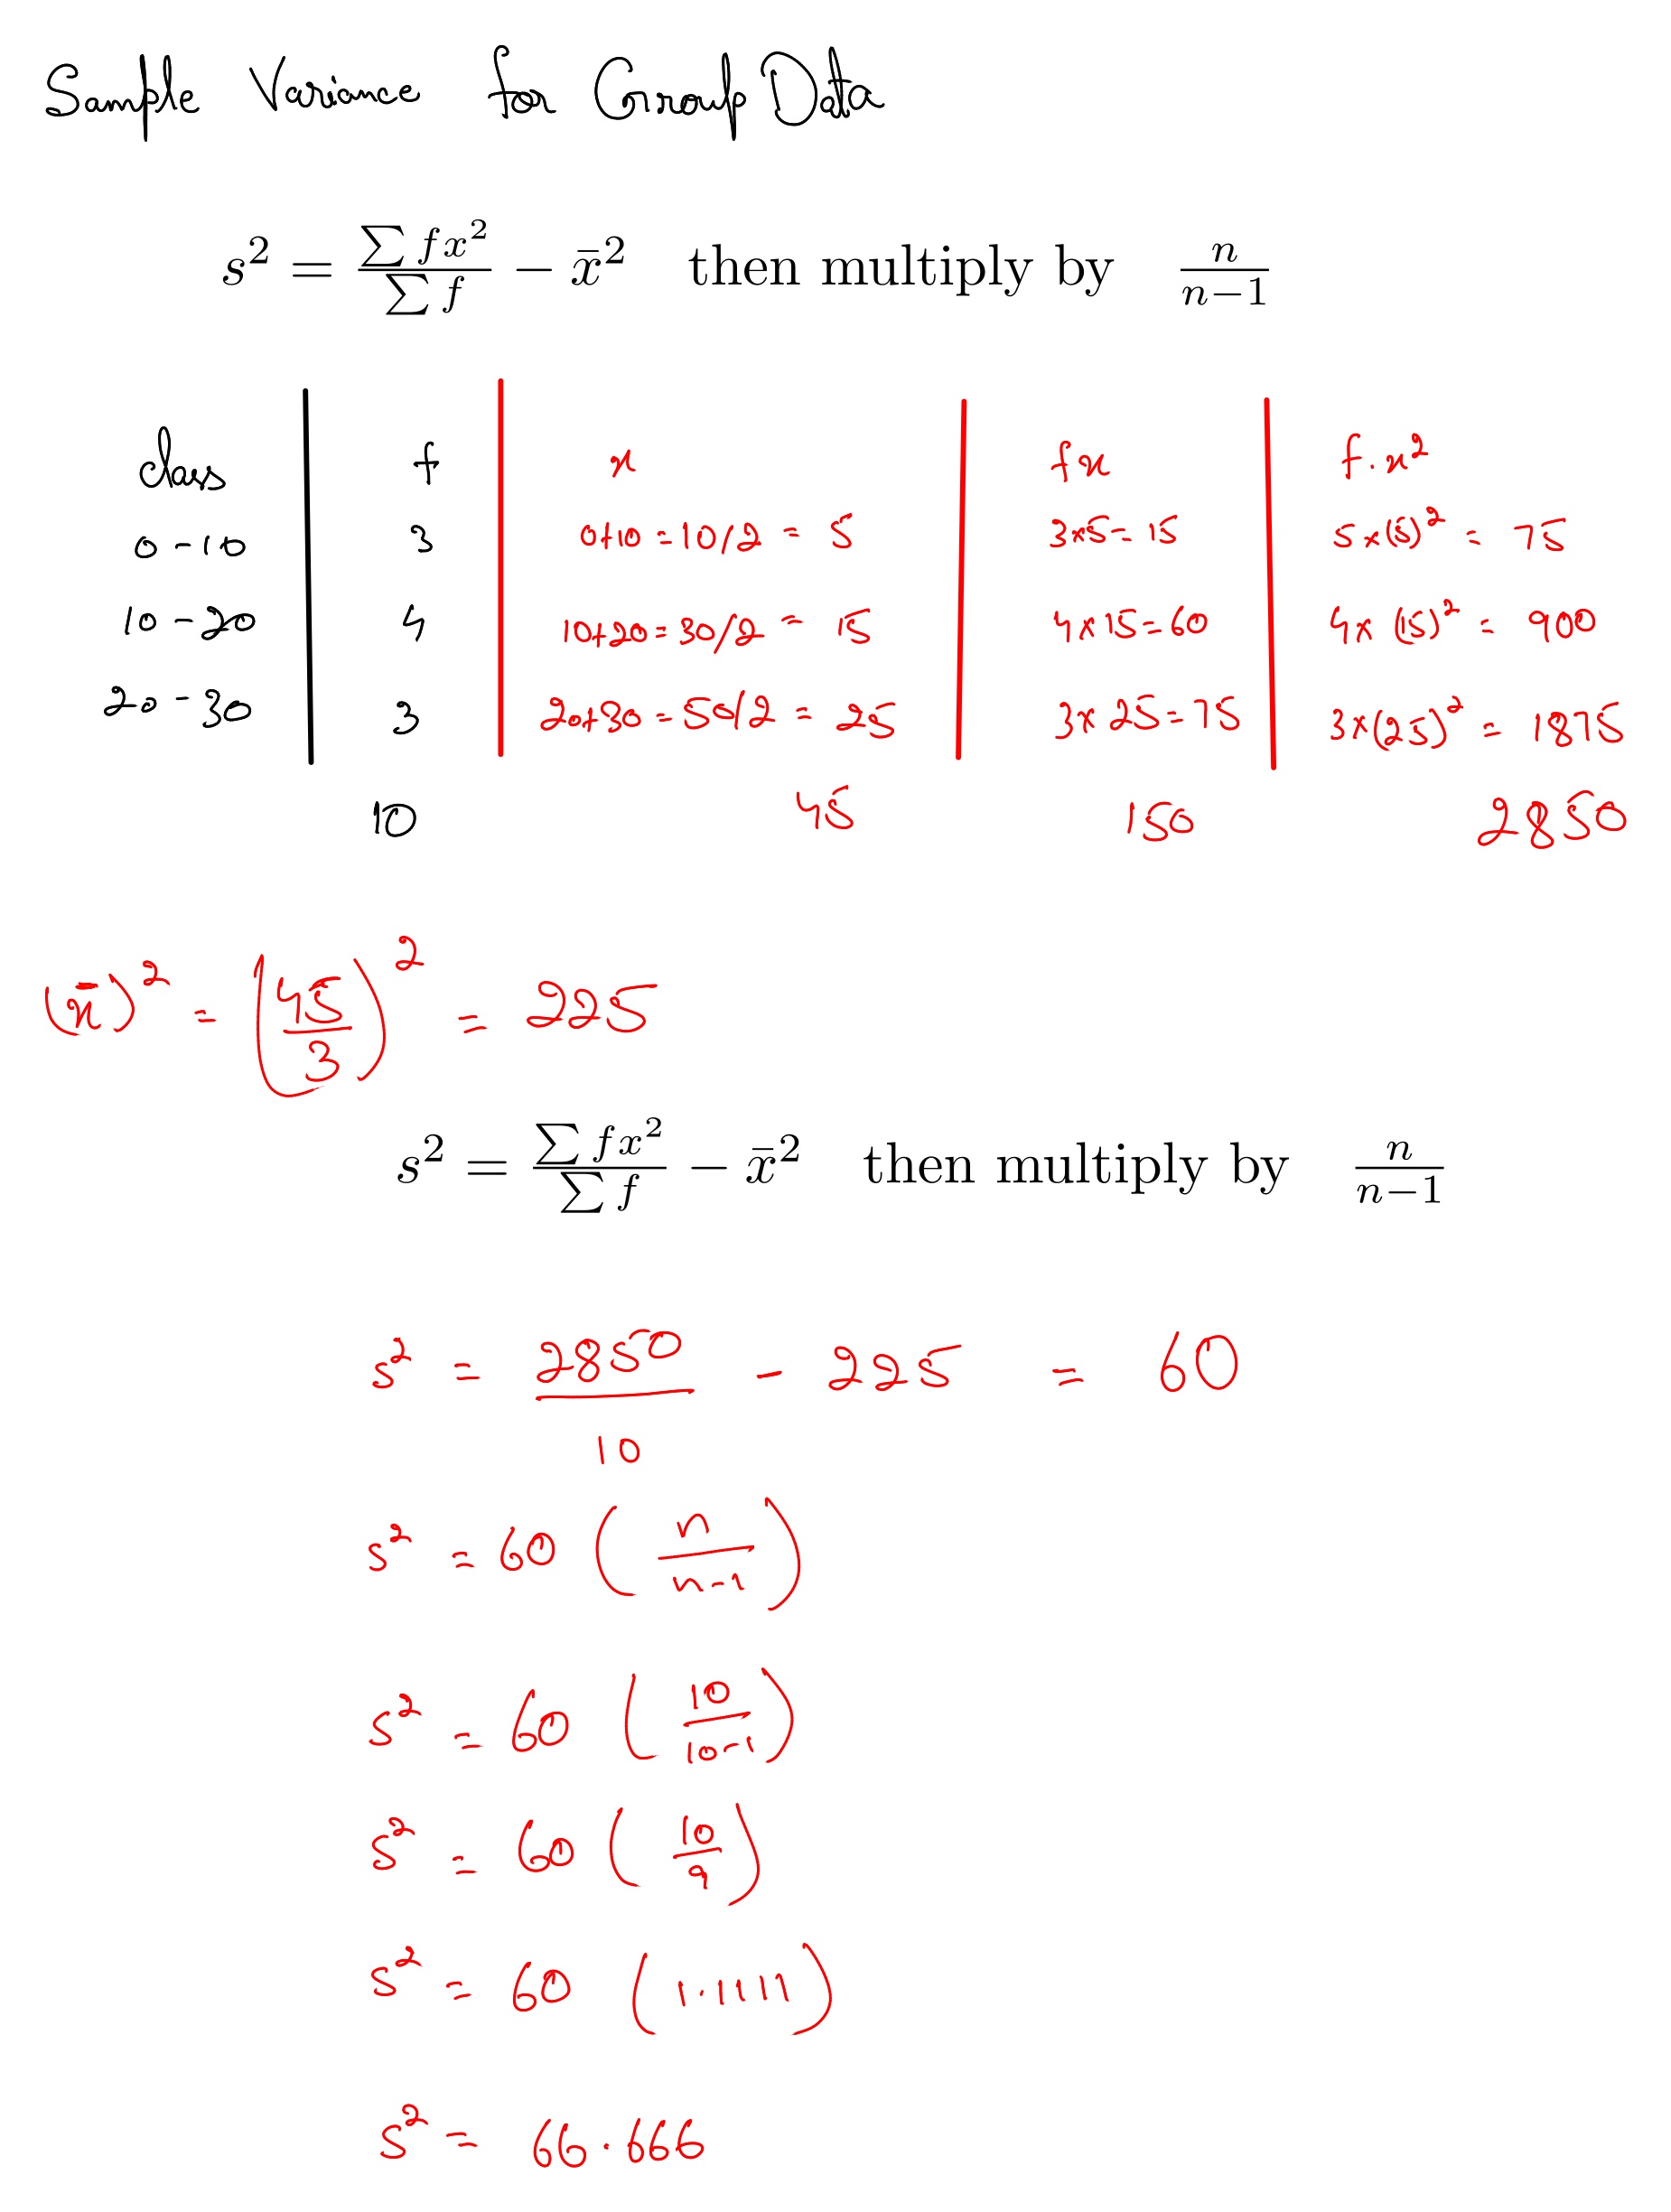 Sample Variance for Group Data
s² = ∑fx²/∑f − x̄² then multiply by n/n−1
class f x fx f.x²
0-10 3 0+10=10/2 = 5 3x5=15 5x(5)² = 75
10-20 4 10+20=30/2 = 15 4x15=60 4x (15)² = 900
20-30 3 20+30=50/2 = 25 3x25=75 3x(25)² = 1875
10 45 150 2850
(x̄)² = (45/3)² = 225
s² = ∑fx²/∑f − x̄² then multiply by n/n−1
s² = 2850/10 - 225 = 60
s² = 60 (n/n-1)
s² = 60 (10/10-1)
s² = 60 (10/9)
s² = 60 (1.1111)
s² = 66.666